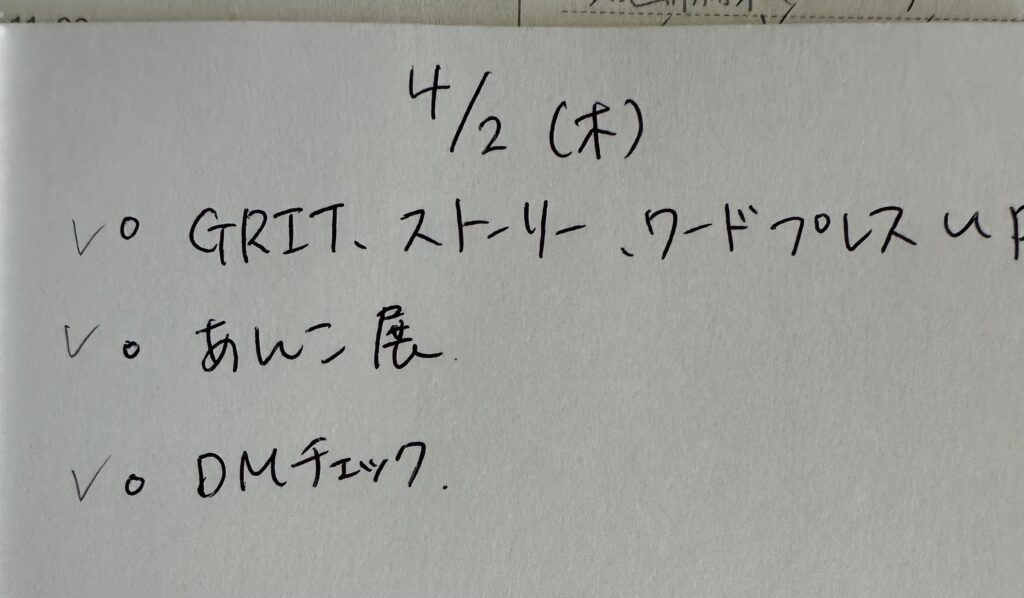 4/2 (木)
✓○ GRIT、ストーリー、ワードプレス UP
✓○ あんこ展.
✓○ DMチェック.